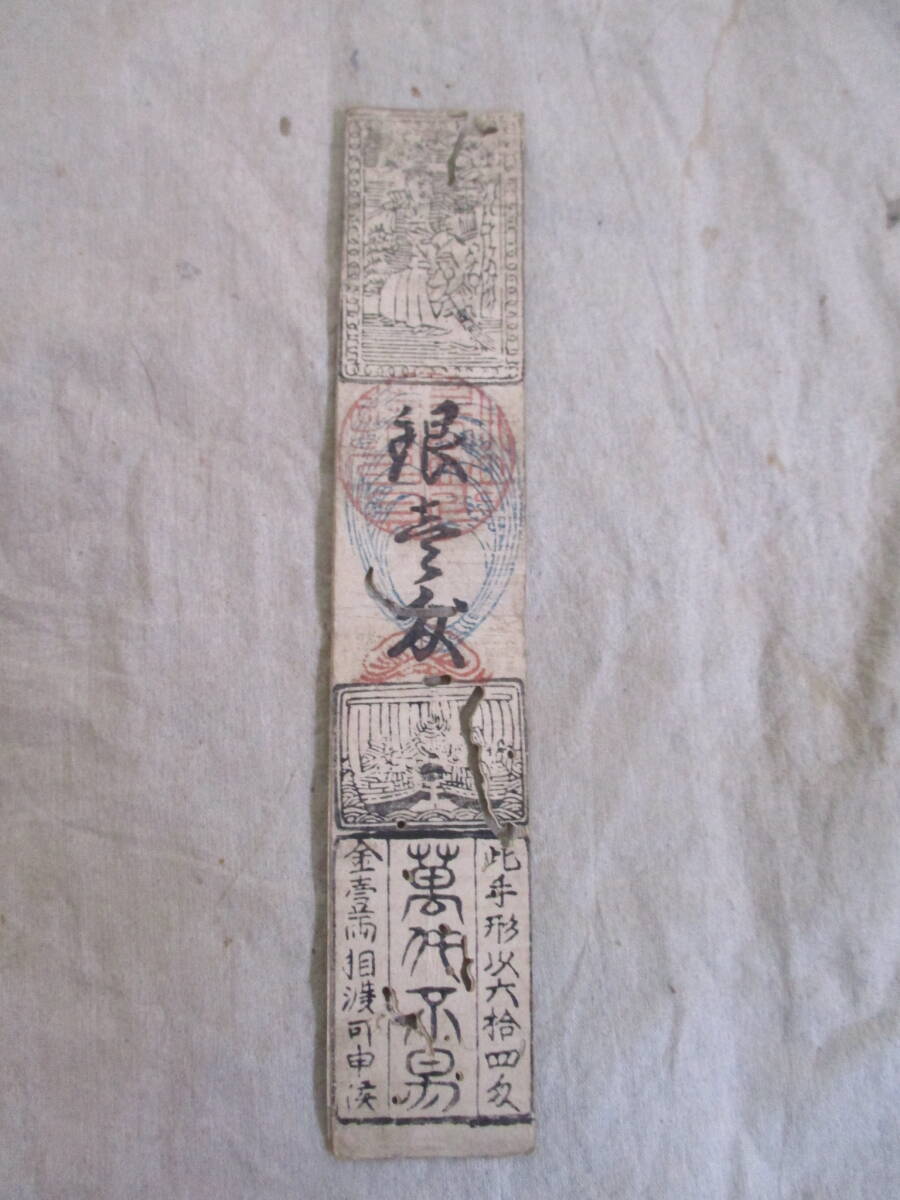 銀壹匁
此手形以六拾四匁
萬代不易
金壹両相渡可申候